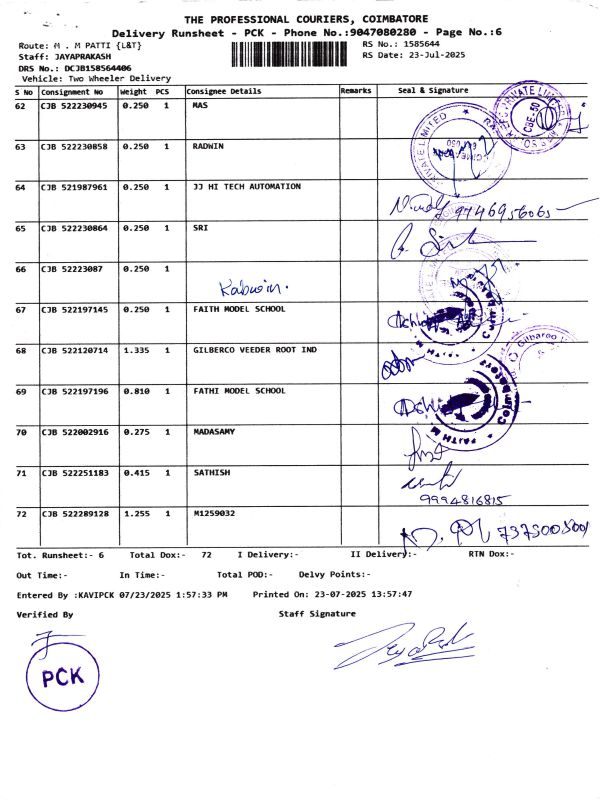 THE PROFESSIONAL COURIERS, COIMBATORE
Delivery Runsheet - PCK - Phone No.:9047080280 - Page No.:6
Route: M . M PATTI {L&T} RS No.: 1585644
Staff: JAYAPRAKASH RS Date: 23-Jul-2025
DRS No.: DCJB158564406
Vehicle: Two Wheeler Delivery
S No Consignment No Weight PCS Consignee Details Remarks Seal & Signature
62 CJB 522230945 0.250 1 MAS
63 CJB 522230858 0.250 1 RADWIN
64 CJB 521987961 0.250 1 JJ HI TECH AUTOMATION
65 CJB 522230864 0.250 1 SRI
66 CJB 52223087 0.250 1
67 CJB 522197145 0.250 1 FAITH MODEL SCHOOL
68 CJB 522120714 1.335 1 GILBERCO VEEDER ROOT IND
69 CJB 522197196 0.810 1 FATHI MODEL SCHOOL
70 CJB 522002916 0.275 1 MADASAMY
71 CJB 522251183 0.415 1 SATHISH
9994816815
72 CJB 522289128 1.255 1 M1259032
Tot. Runsheet:- 6 Total Dox:- 72 I Delivery:- II Delivery:- RTN Dox:-
Out Time:- In Time:- Total POD:- Delvy Points:-
Entered By :KAVIPCK 07/23/2025 1:57:33 PM Printed On: 23-07-2025 13:57:47
Verified By Staff Signature
PCK